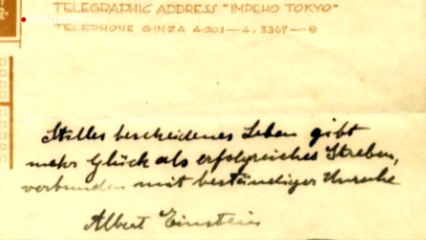 TELEGRAPHIC ADDRESS "IMPEHO TOKYO"
TELEPHONE GINZA 4001—4, 3367—9
Stilles bescheidenes Leben gibt
mehr Glück als erfolgreiches Streben,
verbunden mit beständiger Unruhe
Albert Einstein